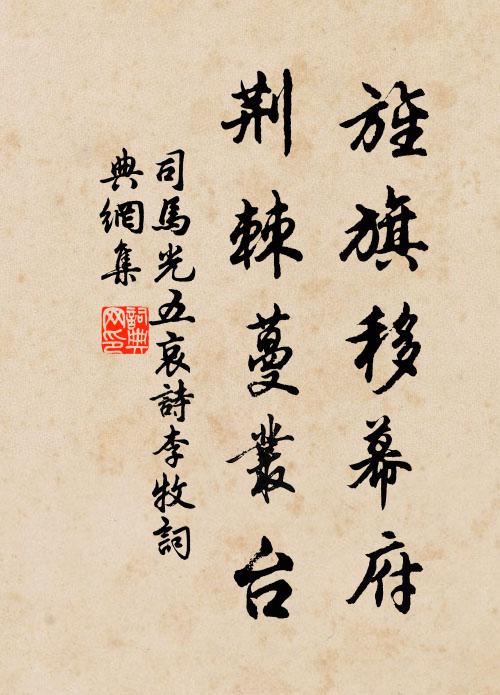 旌旗移幕府
荆棘蔓叢台
司馬光五哀詩李牧詞
典網集
詞典网印